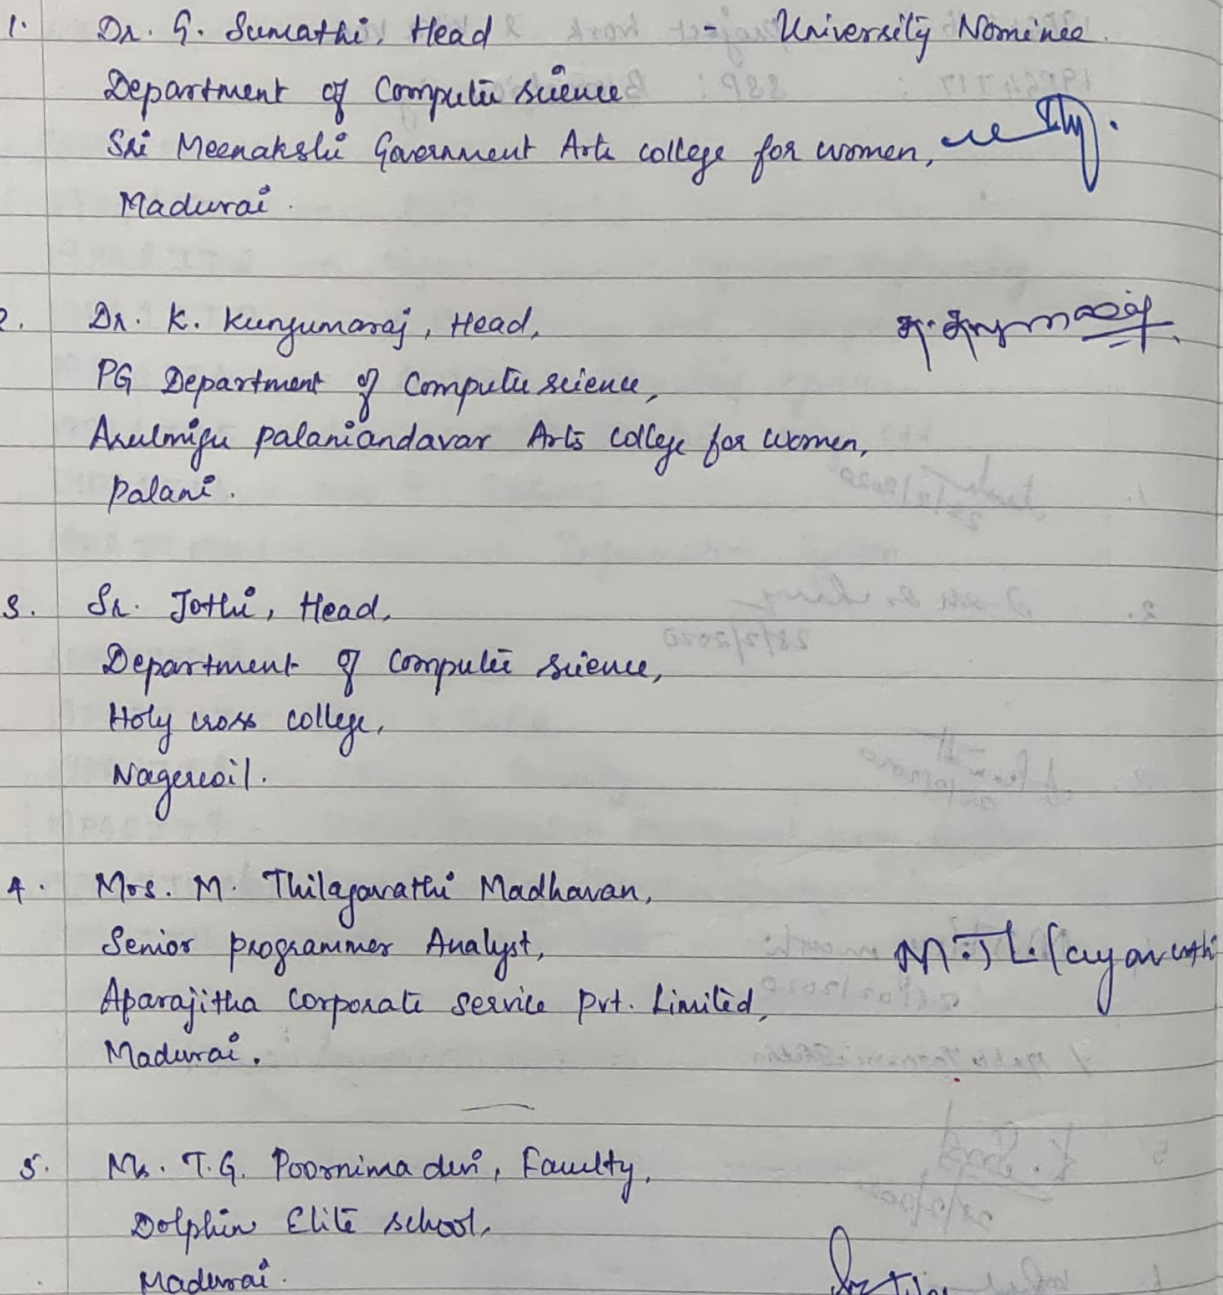 1. Dr. G. Sumathi, Head :- University Nominee.
Department of Computer science
Sri Meenakshi Government Arts college for women,
Madurai.
2. Dr. K. Kunjumaraj, Head,
PG Department of Computer science,
Arulmigu palaniandavar Arts college for women,
Palani.
3. Sr. Jothi, Head,
Department of Computer science,
Holy cross college,
Nagercoil.
4. Mrs. M. Thilagavathi Madhavan, 
Senior programmer Analyst,
Aparajitha Corporate service Pvt. Limited,
Madurai.
5. Ms. T.G. Poornima devi, Faculty,
Dolphin Elite school,
Madurai.